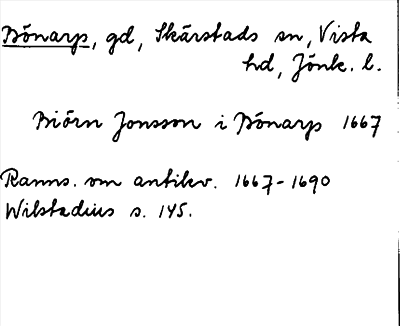 Bönarp, gd, Skärstads sn, Vista
hd, Jönk. l.
Biörn Jonsson i Bönarp 1667
Ranns. om antikv. 1667-1690
Wilstadius s. 145.